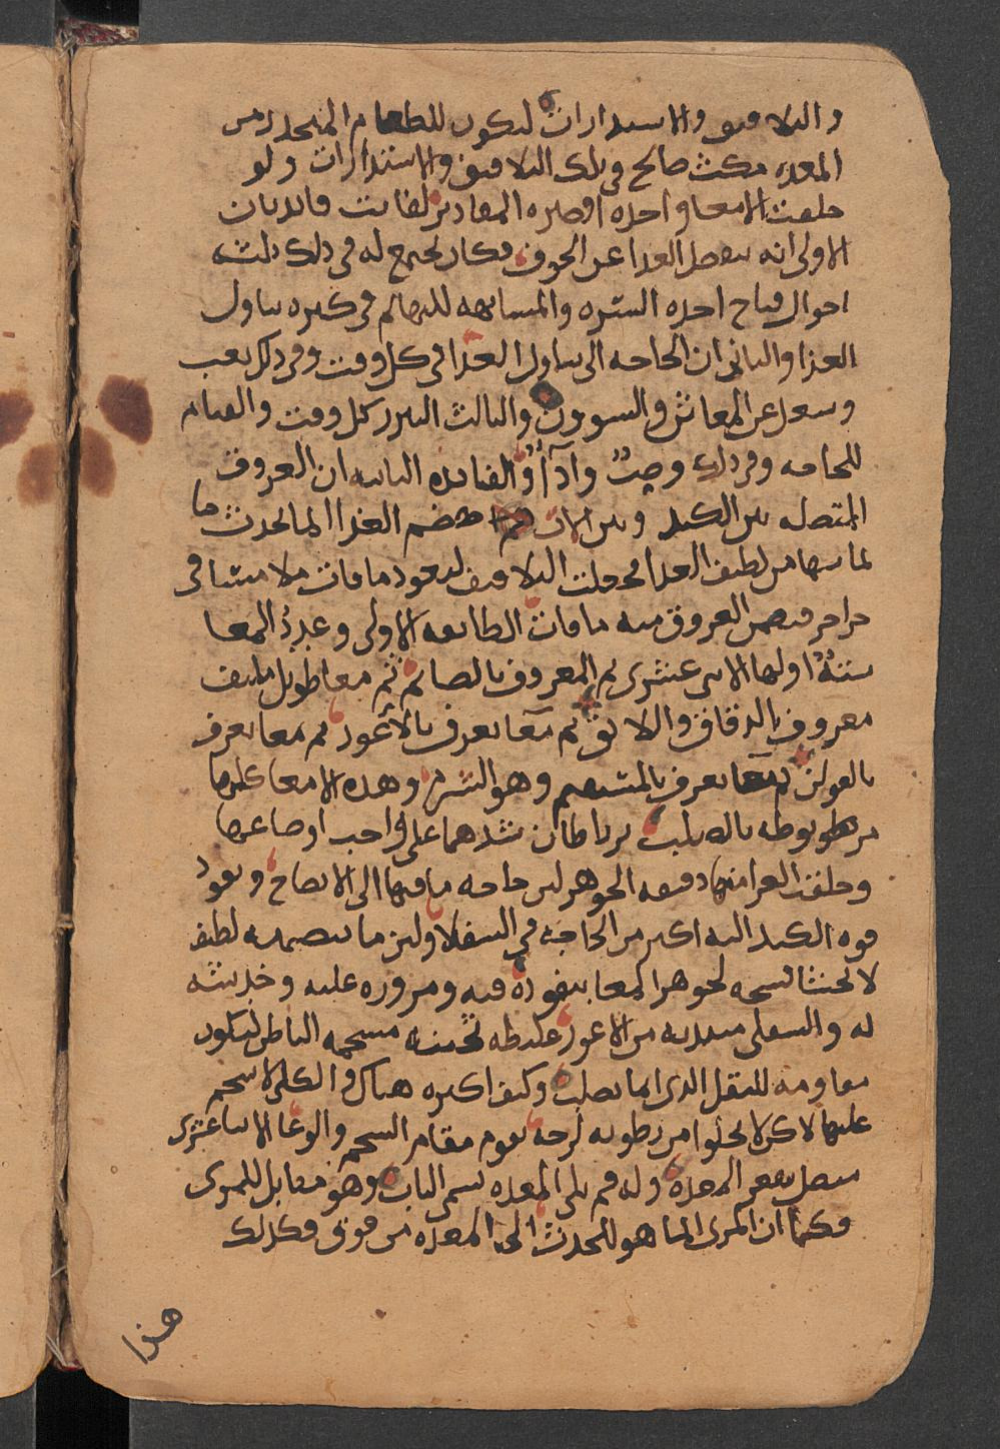 والتلافيف والاستدارات ليكون للطعام المنحدر من
المعده مكث صالح في تلك التلافيف والاستدارات ولو
خلقت الامعا واحده او قصيره المقادير لفاتت فايدتان
الاولى انه ينفصل الغدا عن الجوف فكان يجتمع له في ذلك ثلث
احوال قباح احده الشره والمشابهه للبهايم في كثره تناول
الغذا والثاني ان الحاجه الى تناول الغدا في كل وقت وفي ذلك تعب
وشغل عن المعاش والسوون والثالث التبرز كل وقت والقيام
للحاجه وفي ذلك واذا والفايده الثانيه ان العروق
المتصله بين الكبد وبين هضم الغذا انما تجذب ما
يماسها من لطيف الغدا فجعلت التلافيف ليعود ما فات ملامسا في
جزاخر فيمص العروق منه ما فات الطايفه الاولى وعدد المعا
ستة اولها الاثنى عشري ثم المعروف بالصايم ثم معا طويل ملتف
معروف بالدقاق واللافق ثم معا يعرف بالاعور ثم معا يعرف
بالقولن ثم معا يعرف بالمستقيم وهو السرم وهذه الامعا كلها
مربوطه بالصلب برباطات تشدها على واجب اوضاعها
وخلقت العليا منها دقيقه الجوهر لين حاجه ما فيها الى الانضاج ونفوذ
قوه الكبد اليه اكثر من الحاجه في السفلا ولين ما يتضمنه لطيف
لا يخشا فسخه لجوهر المعا بنفوذه فيه ومروره عليه وخدشه
له والسفلى مبتديه من الاعور غليظه ثخينه مشحمه الباطن ليكون
مقاومه للثقل الذي انما يصلب وكيف اكثره هناك والعليا لا شحم
عليها لاكن لا يخلوا من رطوبه لزجه تقوم مقام الشحم والمعا الاثنا عشري
متصل بقعر المعده وله فم يلي المعده يسمى الباب وهو مقابل للمري
فكما ان المري انما هو للجذب الى المعده من فوق فكذلك
هذا